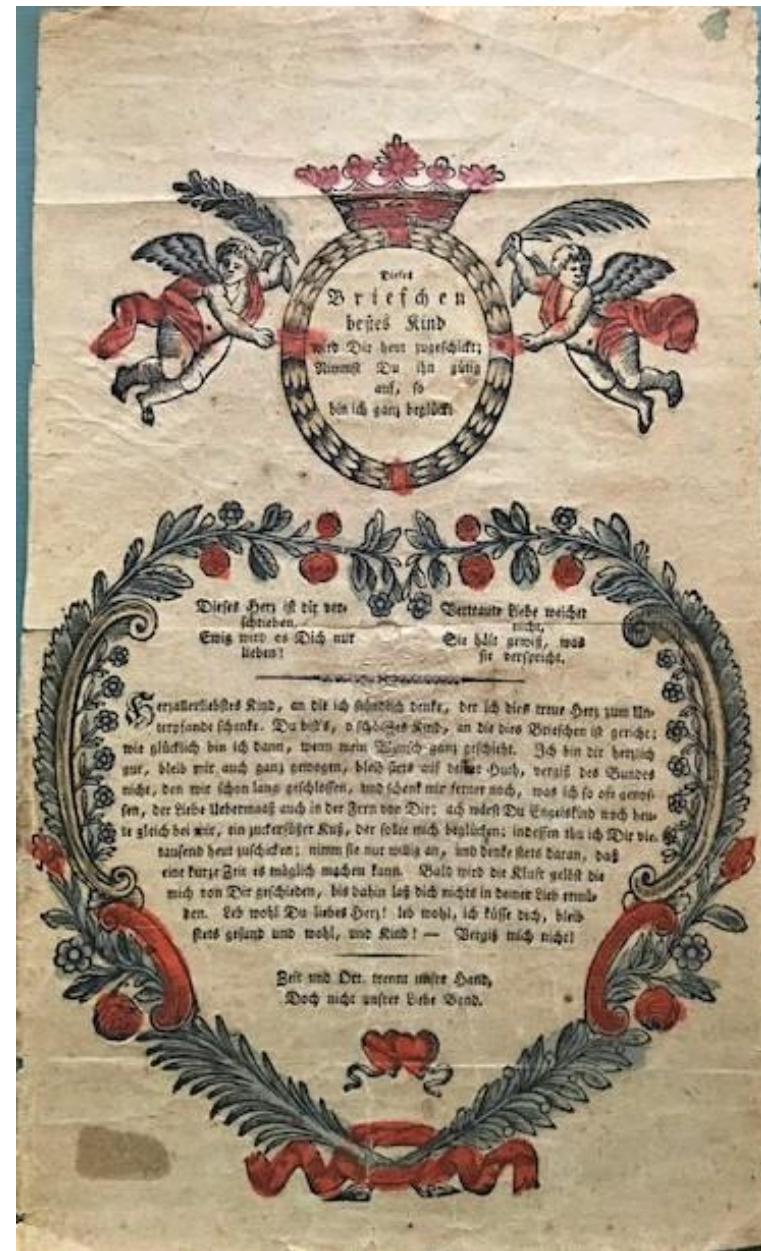 Dieses
Briefchen
bestes Kind
wird Dir heut zugeschickt;
Nimmst Du ihn gütig
auf, so
bin ich ganz beglückt
Dieses Herz ist dir ver-
schrieben,
Ewig wird es Dich nur
lieben!
Vertraute Liebe weichet
nicht,
Sie hält gewiß, was
sie verspricht.
Herzallerliebstes Kind, an die ich stündlich denke, der ich dies treue Herz zum Un-
terpfande schenke. Du bist's, o schönstes Kind, an die dies Briefchen ist gericht;
wie glücklich bin ich dann, wenn mein Wunsch ganz geschieht. Ich bin dir herzlich
gut, bleib mir auch ganz gewogen, bleib stets auf deiner Huth, vergiß des Bundes
nicht, den wir schon lang geschlossen, und schenk mir ferner noch, was ich so oft genos-
sen, der Liebe Uebermaaß auch in der Fern von Dir; ach wärst Du Engelskind noch heu-
te gleich bei mir, ein zuckersüßer Kuß, der sollte mich beglücken; indessen thu ich Dir vie-
tausend heut zuschicken; nimm sie nur willig an, und denke stets daran, daß
eine kurze Zeit es möglich machen kann. Bald wird die Kluft gelößt die
mich von Dir geschieden, bis dahin laß dich nichts in deiner Lieb ermü-
den. Leb wohl Du liebes Herz! leb wohl, ich küsse dich, bleib
stets gesund und wohl, und Kind! — Vergiß mich nicht!
Zeit und Ort trennt unsre Hand,
Doch nicht unsrer Liebe Band.